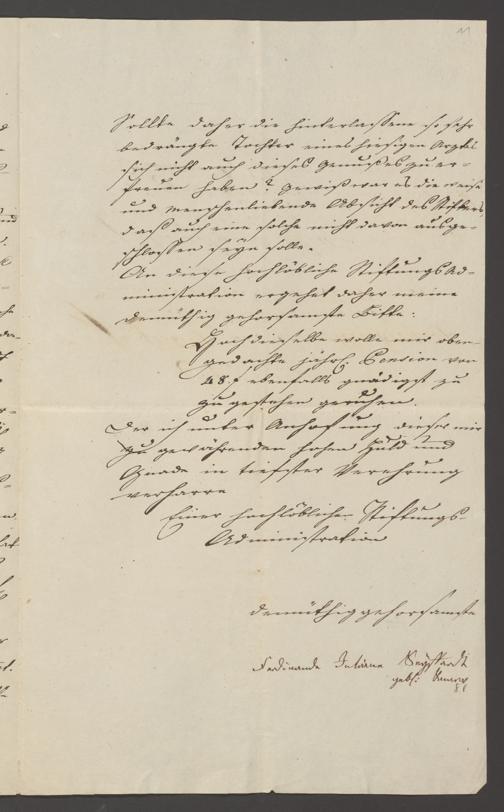 11
Sollte daher die hinterlassene so sehr
bedrängte Tochter eines hiesigen Arztes
sich nicht auch dieses Genusses zu er-
freuen haben? Gewiß war es die weise
und menschenliebende Absicht des Stifters,
daß auch eine solche nicht davon ausge-
schlossen seyn solle.
An diese hochlöbliche Stiftungs Ad-
ministration ergehet daher meine
demüthig gehorsamste Bitte:
Hochdieselbe wolle mir oben-
gedachte jährl. Pension von
48 f ebenfalls gnädigst zu
zugestehen geruhen.
Der ich unter Anhoffung dieser mir
zu gewährenden hohen Huld und
Gnade in tiefster Verehrung
verharre
Einer hochlöblichen Stiftungs-
Administration
demüthig gehorsamste
Ferdinande Juliane
geb: